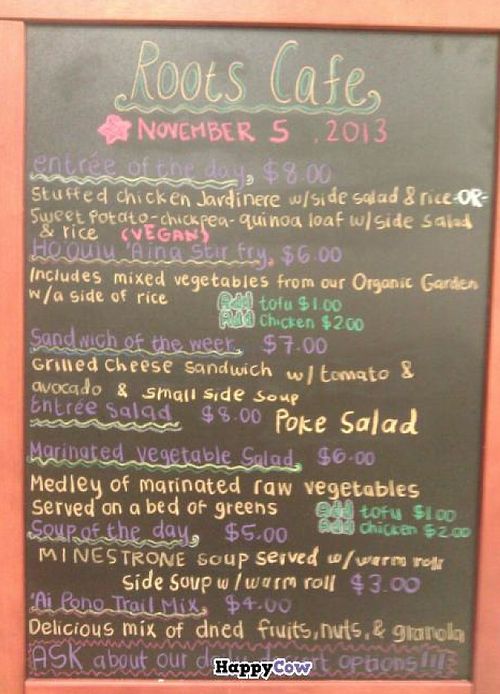 Roots Cafe
NOVEMBER 5, 2013
entrée of the day, $8.00
Stuffed chicken Jardinere w/side salad & rice -OR-
Sweet potato-chickpea-quinoa loaf w/side salad
& rice (VEGAN)
HO'OULU 'AINA Stir fry, $6.00
Includes mixed vegetables from our Organic Garden
w/a side of rice Add tofu $1.00
Add Chicken $2.00
Sandwich of the week, $7.00
Grilled Cheese Sandwich w/tomato &
avocado & small side soup
Entrée Salad $8.00 Poke Salad
Marinated Vegetable Salad, $6.00
Medley of marinated raw vegetables
Served on a bed of greens Add tofu $1.00
Soup of the day, $5.00 Add Chicken $2.00
MINESTRONE soup served w/warm roll
Side soup w/warm roll $3.00
'Ai Pono Trail Mix, $4.00
Delicious mix of dried fruits, nuts, & granola
ASK about our options!!!
HappyCow